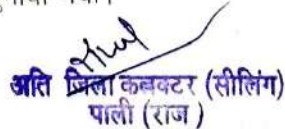 अति जिला कलक्टर (सीलिंग)
पाली (राज )